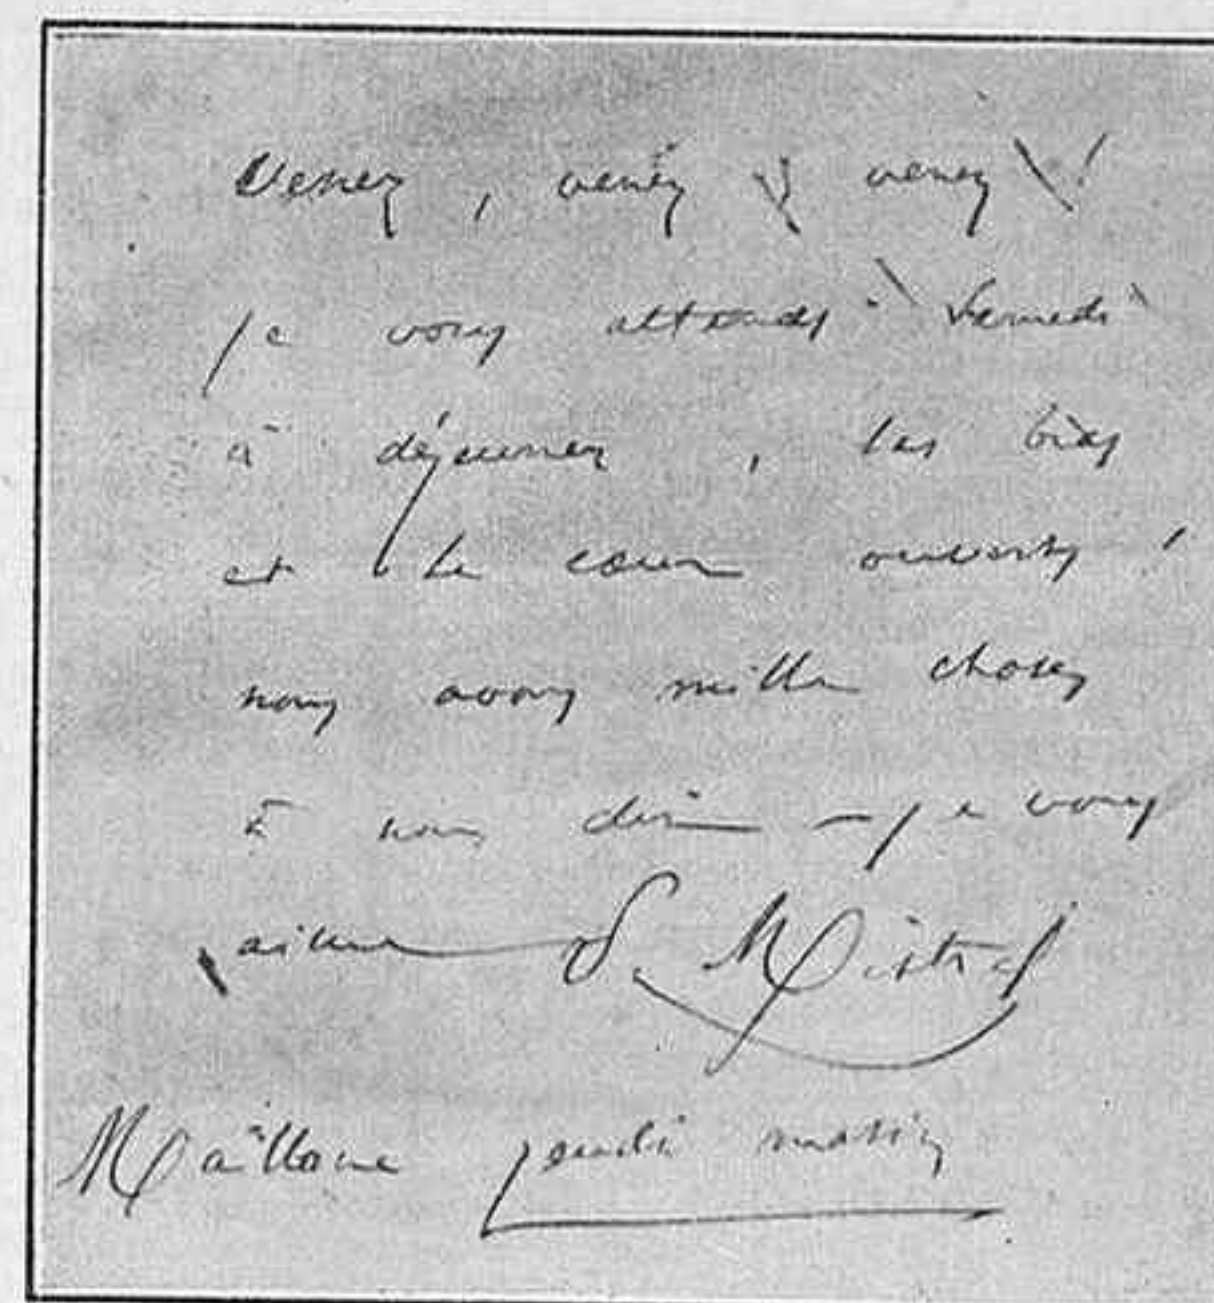 Venez, venez, venez !
je vous attends samedi
à déjeuner, les bras
et le cœur ouverts !
nous avons mille choses
à nous dire — je vous
aime F. Mistral
Maillane jeudi matin